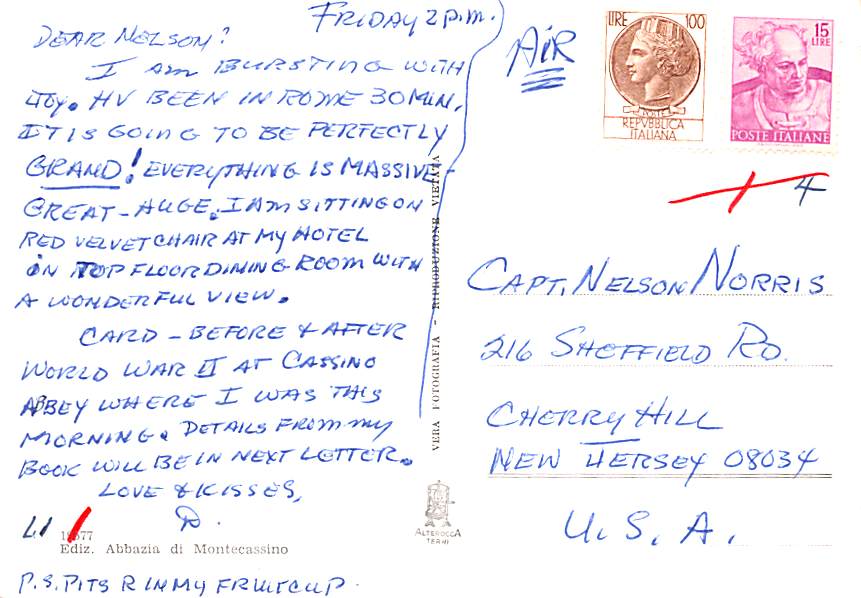 FRIDAY 2 P.M.
DEAR NELSON?
I AM BURSTING WITH
JOY. HV BEEN IN ROME 30 MIN.
IT IS GOING TO BE PERFECTLY
GRAND! EVERYTHING IS MASSIVE-
GREAT - HUGE. I AM SITTING ON
RED VELVET CHAIR AT MY HOTEL
IN TOP FLOOR DINING ROOM WITH
A WONDERFUL VIEW.
CARD - BEFORE & AFTER
WORLD WAR II AT CASSINO
ABBEY WHERE I WAS THIS
MORNING. DETAILS FROM MY
BOOK WILL BE IN NEXT LETTER.
LOVE & KISSES,
D.
LI
Ediz. Abbazia di Montecassino
P.S. PITS R IN MY FRUITCUP.
VERA FOTOGRAFIA - RIPRODUZIONE VIETATA
ALTEROCCA
TERNI
AIR
LIRE 100
REPVBBLICA
ITALIANA
15
LIRE
POSTE ITALIANE
4
CAPT. NELSON NORRIS
216 SHEFFIELD RD.
CHERRY HILL
NEW JERSEY 08034
U.S.A.